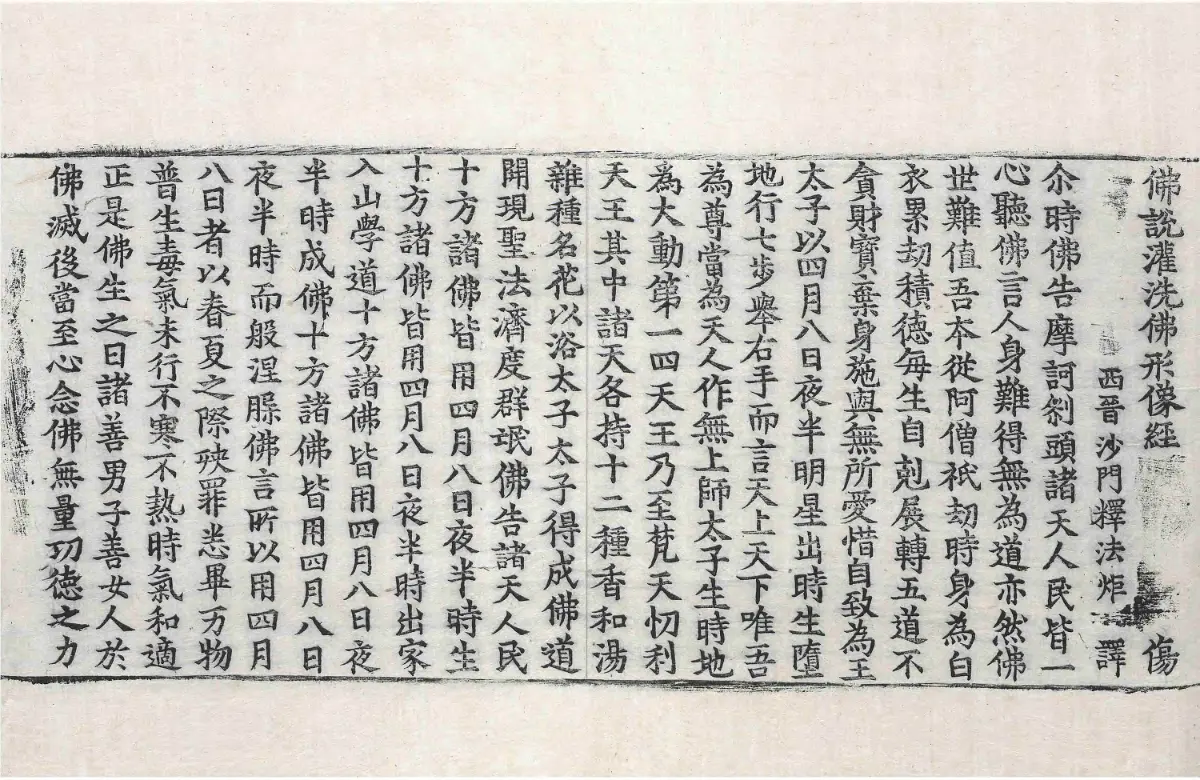 佛說灌洗佛形像經 傷
西晉沙門釋法炬 譯
尒時佛告摩訶剎頭諸天人民皆一
心聽佛言人身難得無為道亦然佛
世難值吾本從阿僧祇劫時身為白
衣累劫積德每生自剋展轉五道不
貪財寶棄身施與無所愛惜自致為王
太子以四月八日夜半明星出時生墮
地行七步舉右手而言天上天下唯吾
為尊當為天人作無上師太子生時地
為大動第一四天王乃至梵天忉利
天王其中諸天各持十二種香和湯
雜種名花以浴太子太子得成佛道
開現聖法濟度群氓佛告諸天人民
十方諸佛皆用四月八日夜半時生
十方諸佛皆用四月八日夜半時出家
入山學道十方諸佛皆用四月八日夜
半時成佛十方諸佛皆用四月八日
夜半時而般涅槃佛言所以用四月
八日者以春夏之際殃罪悉畢万物
普生毒氣未行不寒不熱時氣和適
正是佛生之日諸善男子善女人於
佛滅後當至心念佛無量功德之力